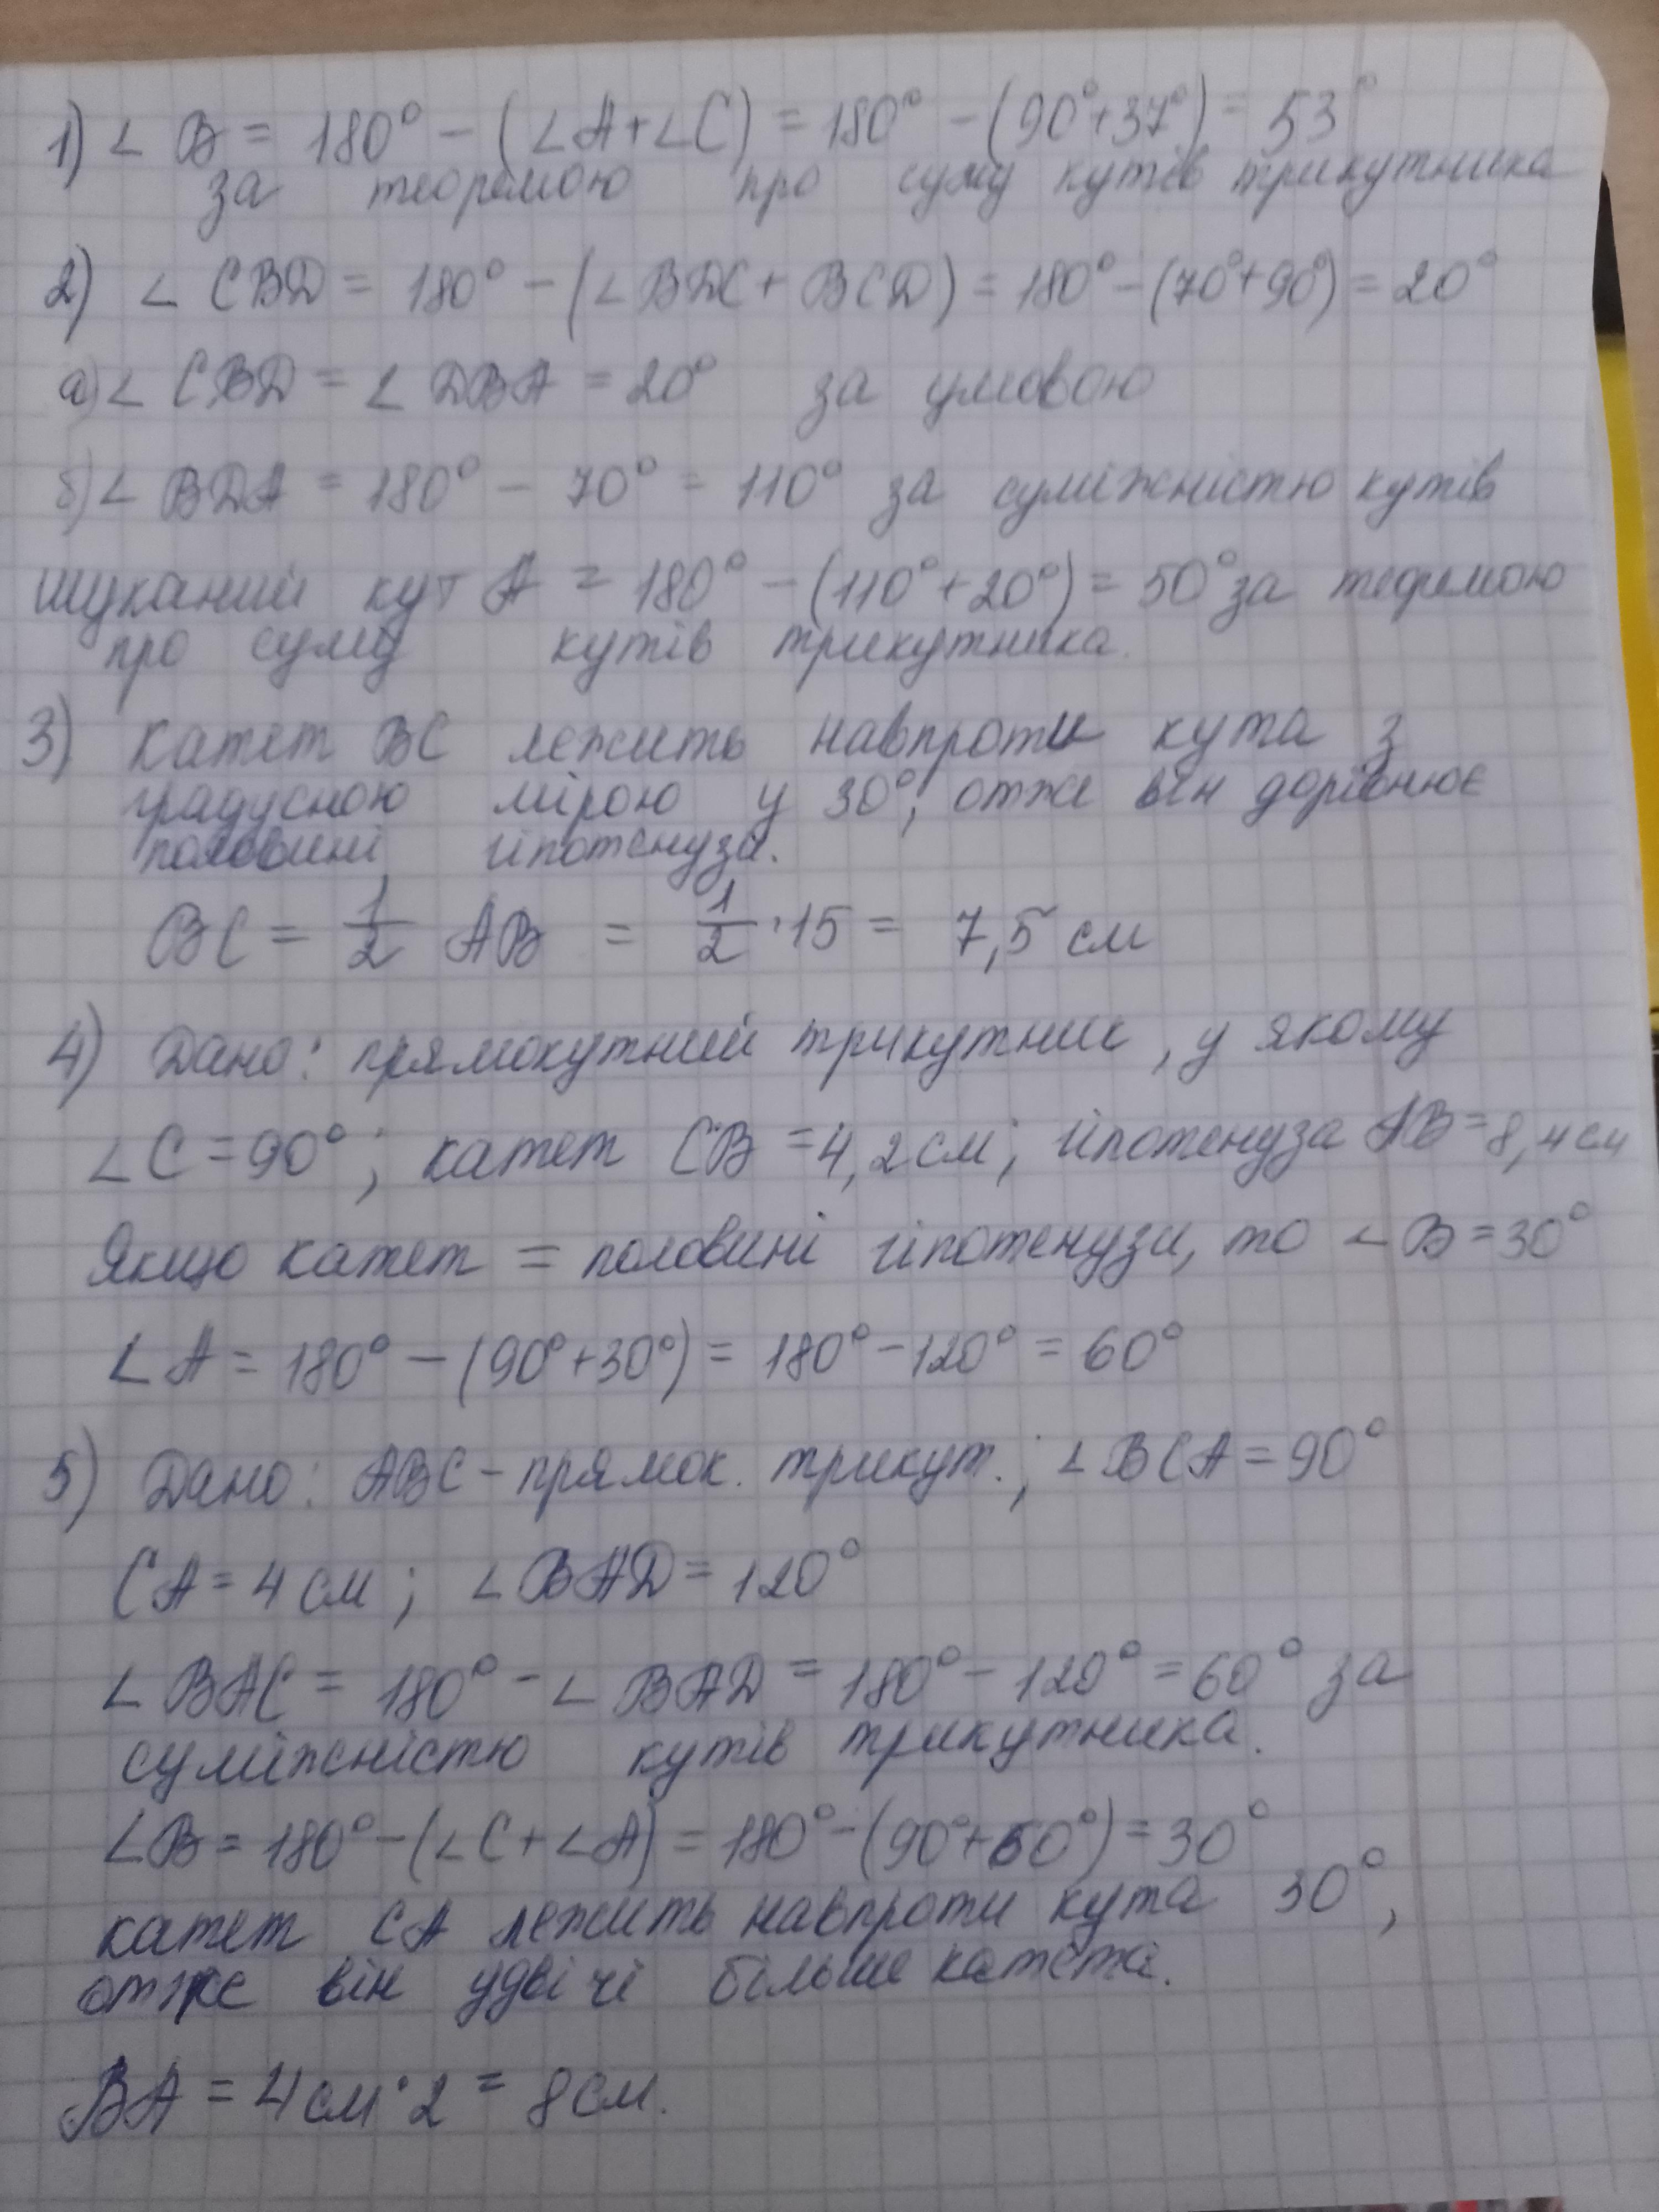 1) ∠ B = 180° - (∠A+∠C) = 180° - (90°+37°) = 53°
за теоремою про суму кутів трикутника
2) ∠ CBD = 180° - (∠BDC + BCD) = 180° - (70°+90°) = 20°
а) ∠ CBD = ∠ DBA = 20° за умовою
б) ∠ BDA = 180° - 70° = 110° за суміжністю кутів
шуканий кут A = 180° - (110°+20°) = 50° за теоремою
про суму кутів трикутника.
3) Катет BC лежить навпроти кута з
градусною мірою у 30°, отже він дорівнює
половині гіпотенузи.
BC = 1/2 AB = 1/2 · 15 = 7,5 см
4) Дано: прямокутний трикутник, у якому
∠C = 90°; катет CB = 4,2 см; гіпотенуза AB = 8,4 см
Якщо катет = половині гіпотенузи, то ∠B = 30°
∠A = 180° - (90°+30°) = 180° - 120° = 60°
5) Дано: ABC - прямок. трикут.; ∠BCA = 90°
CA = 4 см; ∠BAD = 120°
∠BAC = 180° - ∠BAD = 180° - 120° = 60° за
суміжністю кутів трикутника.
∠B = 180° - (∠C + ∠A) = 180° - (90°+60°) = 30°
катет CA лежить навпроти кута 30°,
отже він удвічі більше катета.
BA = 4 см · 2 = 8 см.